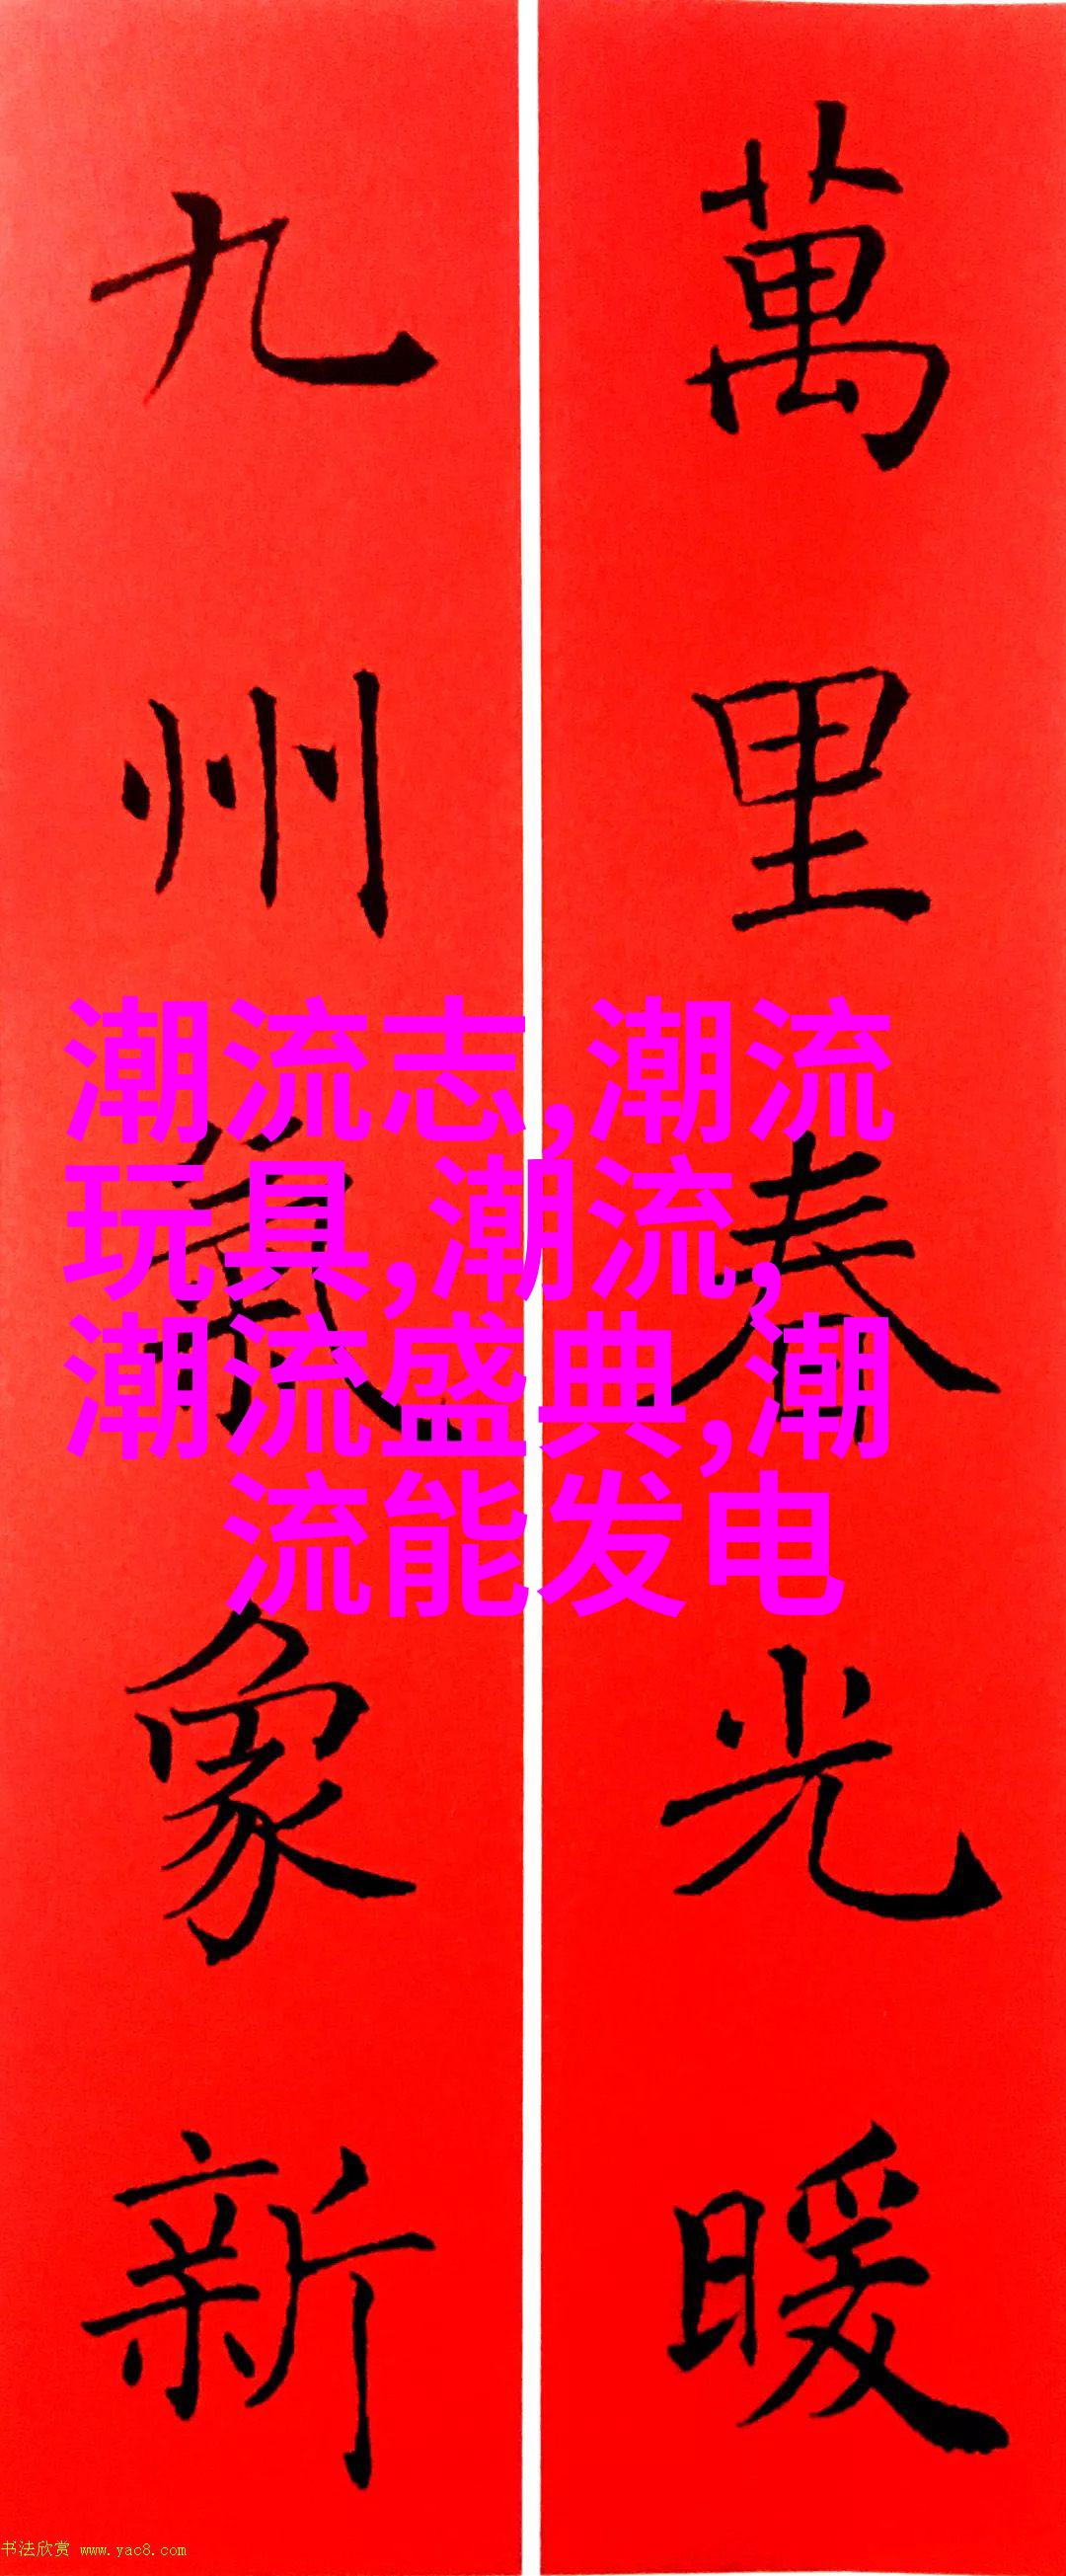 萬里春光暖
九州氣象新
潮流志,潮流
玩具,潮流,
潮流盛典,潮
流能发电
书法欣赏 www.yac8.com